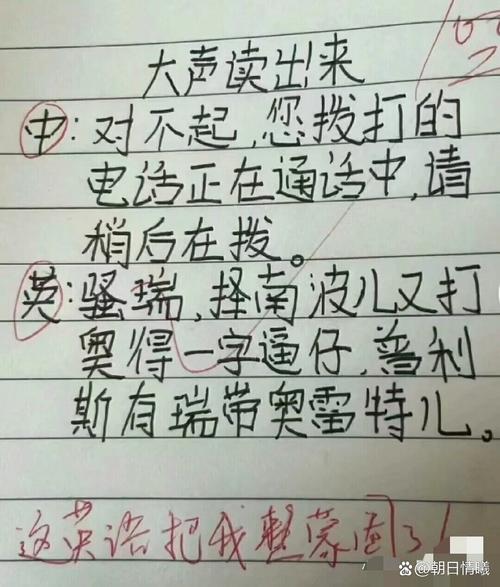 大声读出来
中:对不起,您拨打的
电话正在通话中,请
稍后在拨。
英:骚瑞,择南波儿又打
奥得一字逼仔,普利
斯有瑞带奥雷特儿。
这英语把我整蒙圈了!
@朝日情曦